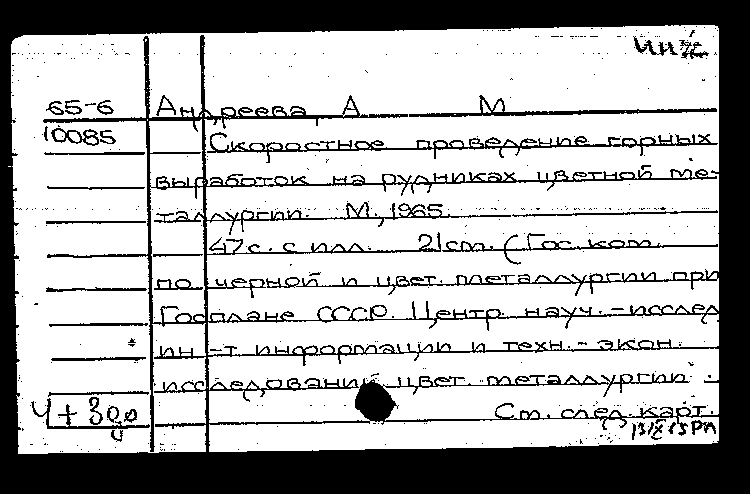 65-6 Андреева, А М
10085 Скоростное проведение горных
выработок на рудниках цветной ме-
таллургии. М., 1965.
47 с. с илл. 21 cm. (Гос. ком.
по черной и цвет. металлургии при
Госплане СССР. Центр науч.-исслед
ин-т информации и техн.-экон.
исследований цвет. металлургии.
Ч+З
См. след. карт.